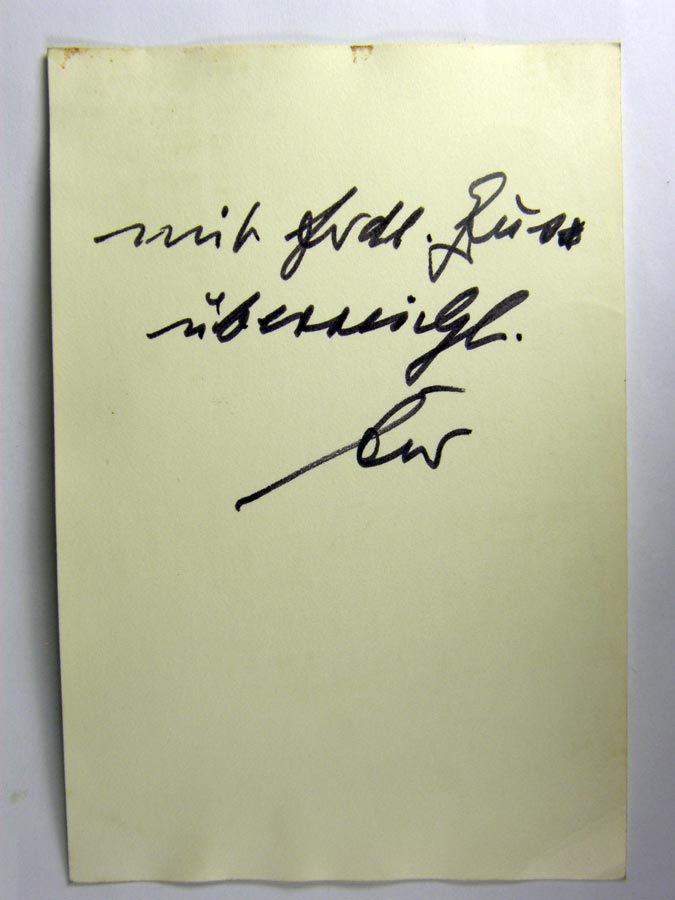 mit frdl. Gruss
überreicht.